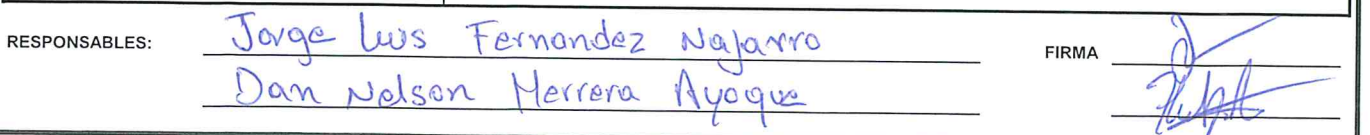 RESPONSABLES: Jorge Luis Fernandez Najarro FIRMA
Dan Nelson Herrera Ayoque